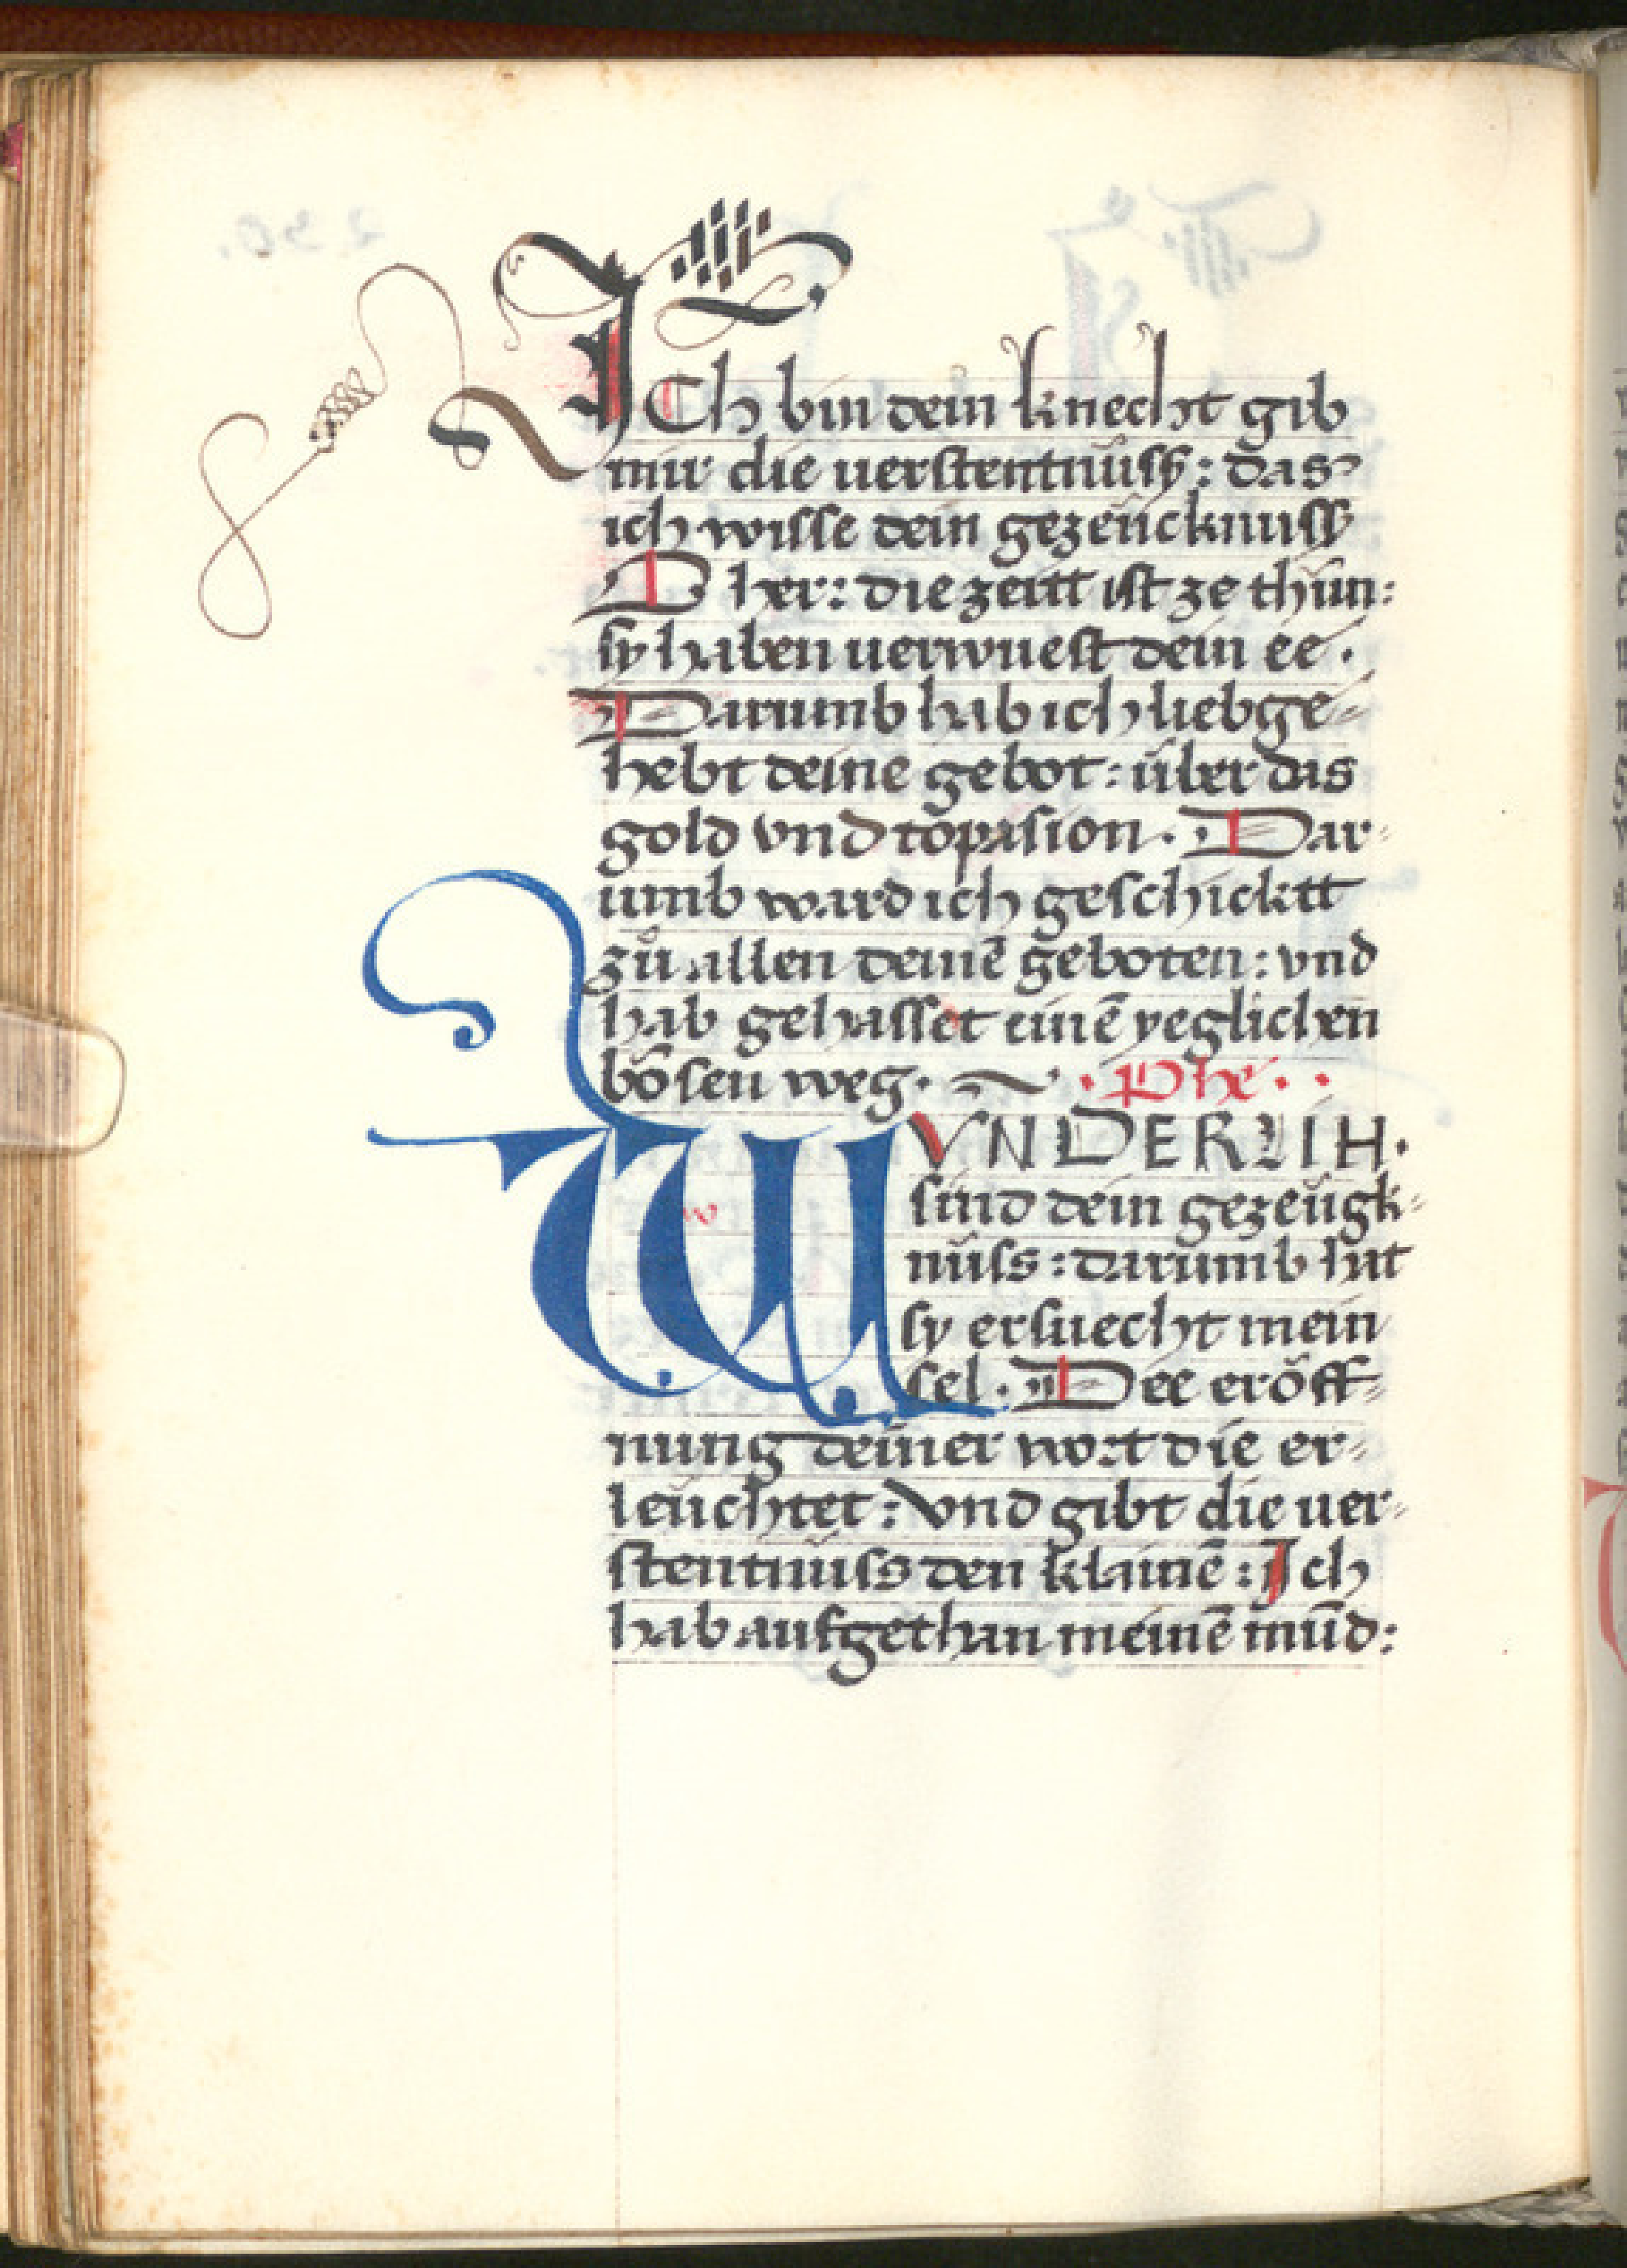 ICh bin dein knecht gib
mir die uerstentnŭss: das
ich wisse dein gezeŭcknuss
O her: die zeitt ist ze thŭn:
sy haben uerwuest dein ee.
Darumb hab ich liebge-
hebt deine gebot: ŭber das
gold vnd tŏpasion. Dar-
umb ward ich geschicktt
zů allen deinē geboten: vnd
hab gehasset einē yeglichen
bŏsen weg. ~ . Phe . .
WVNDERLIH.
sind dein gezeŭgk-
nŭss: darumb hat
sy ersuecht mein
sel. Dee erŏff-
nung deiner wort die er-
leŭchtet: vnd gibt die uer-
stentnŭss den klainē: Ich
hab aufgethan meinē mŭd: